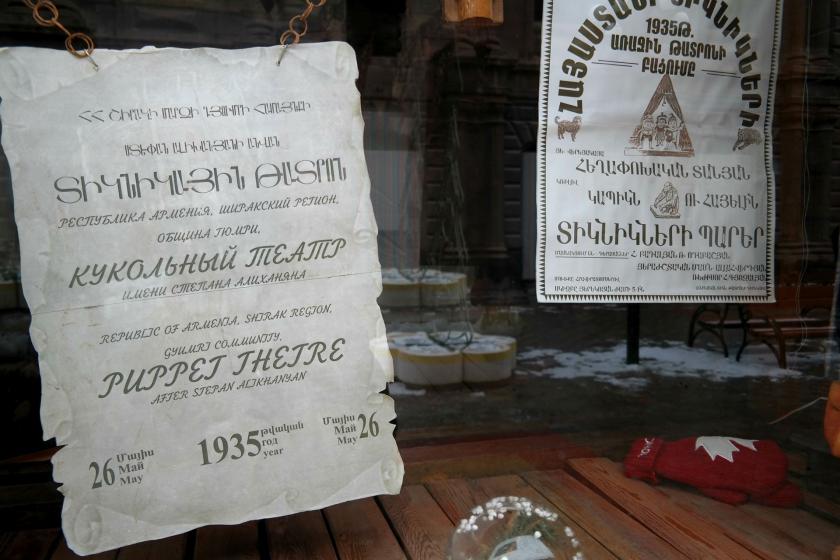 ՀՀ ՇԻՐԱԿԻ ՄԱՐԶԻ ԳՅՈՒՄՐԻ ՀԱՄԱՅՆՔԻ
ՍՏԵՓԱՆ ԱԼԻԽԱՆՅԱՆԻ ԱՆՎԱՆ
ՏԻԿՆԻԿԱՅԻՆ ԹԱՏՐՈՆ
РЕСПУБЛИКА АРМЕНИЯ, ШИРАКСКИЙ РЕГИОН,
ОБЩИНА ГЮМРИ,
КУКОЛЬНЫЙ ТЕАТР
ИМЕНИ СТЕПАНА АЛИХАНЯНА
REPUBLIC OF ARMENIA, SHIRAK REGION,
GYUMRI COMMUNITY,
PUPPET THETRE
AFTER STEPAN ALIKHANYAN
26 Մայիս Май May
1935 թվական год year
Մայիս Май May 26
ՀԱՅԱՍՏԱՆԻ ՏԻԿՆԻԿՆԵՐԻ
1935Թ.
ԱՌԱՋԻՆ ԹԱՏՐՈՆԻ
ԲԱՑՈՒՄԸ
ՀԵՂԱՓՈԽԱԿԱՆ ՏԱՆՅԱՆ
ԿԱՊԻԿՆ ՈՒ ՀԱՅԵԼԻՆ
ՏԻԿՆԻԿՆԵՐԻ ՊԱՐԵՐ